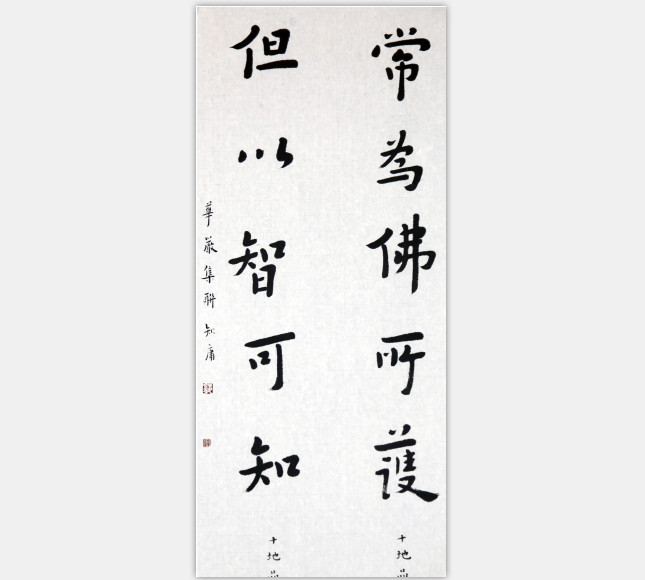 常為佛所護
十地
但以智可知
十地
華嚴集聯 知庸